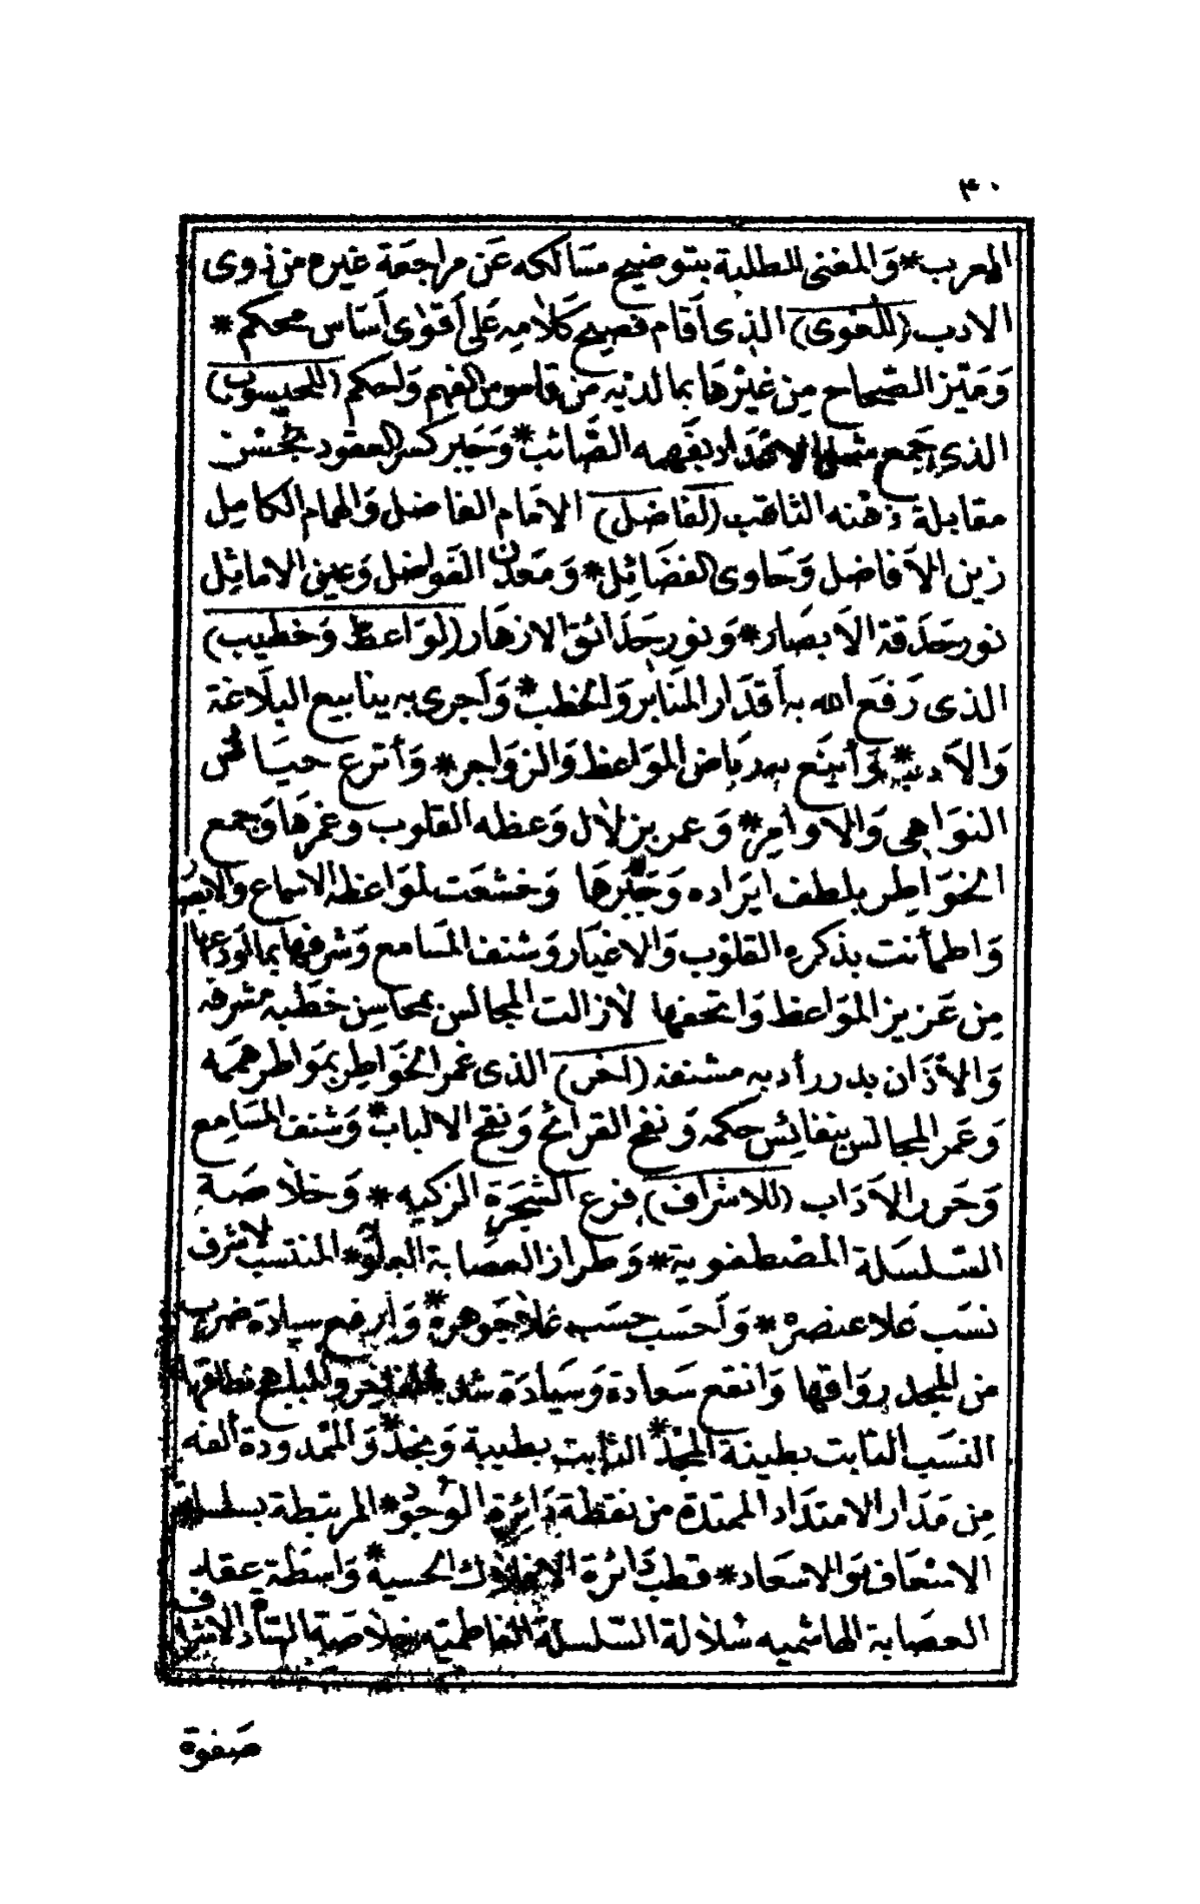 ۴۰
المعرب * وَالمغنى للطلبة بتوضيح مسَالكه عَن مراجعَة غيره من ذوى
الادب (للغوى) الذى أقام فصيح كَلامه عَلى أقوٰى أسَاس محكم *
وَمَيّز الصّحاح مِن غيْرهَا بما لديه من قاموس الفهم وَالحكم (للحيسوب)
الذى جَمع شمل الاعْدَاد بفهمه الصَّائب * وَجَبر كسر العقود بحُسْن
مقابلة ذهْنه الثاقب (لفاضل) الامَام الفاضل وَالهمام الكامِل
زين الأفاضل وَحَاوى الفضَائِل * وَمَعْدن الفوَاضل وَعين الاماثِل
نور حَدقة الأبصَار * وَنور حَدَائق الازهَار (لوَاعظ وَخطيب)
الذى رَفَع الله به أقدَار المنَابر وَالخطب * وَأجرى به ينابيع البلَاغة
وَالأدب * وَأينَع به ريَاض الموَاعظ وَالزوَاجر * وَأترع حيَاض
النوَاهى وَالأوَامِر * وَعمر بزلال وَعظه القلوب وغمرهَا وَجمع
الخوَاطِر بلطف ايرَاده وَجَبَرهَا وَخشعَت لموَاعظه الاسماع وَالابصَار
وَاطمأنت بذكره القلوب وَالاغيَار وَشنف المسَامع وَشرفها بما اودعها
مِن عَزيز الموَاعظ وَاتحفها لازالت المجالس بمحَاسِن خطبه مشرفه
وَالأذَان بدرر أدبه مشنفه (اخر) الذى غمر الخوَاطِر بموَاطر هممه
وَعَمر المجالس بنفائس حكمه وَنفح القرائح وَنقح الالباب * وَشنف المسَامِع
وَحَرر الآدَاب (للاشراف) فرع الشجَرَة الزكيه * وَخلَاصَة
السّلسَلة المصْطفوية * وَطراز العصَابة العلويّه * المنتسب لاشرف
نسَب عَلا عنصره * وَأحَسَب حسَب غلَا جَوهره * وَأرفع سيادة ضربت
من المجد روَاقها وَانفع سَعادة وَسيَادَة شدت الفخر والمباهج نطاقها
النسَب الثابت بطينة المجْد * النابت بطيبة وَنجد * وَالممدودة الفه
مِن مَدَار الامتدَاد الممتدّة من نقطة دَائِرة الوُجود * المرتبطة بسلسلة
الاسْعَاف وَالاسعَاد * قطب دَائرة الافلاك الحسية * وَاسطَة عقد
العصَابة الهاشميه سُلالة السّلسلة الفاطميّه خلَاصَة السَّادة الاشراف
صَفوة